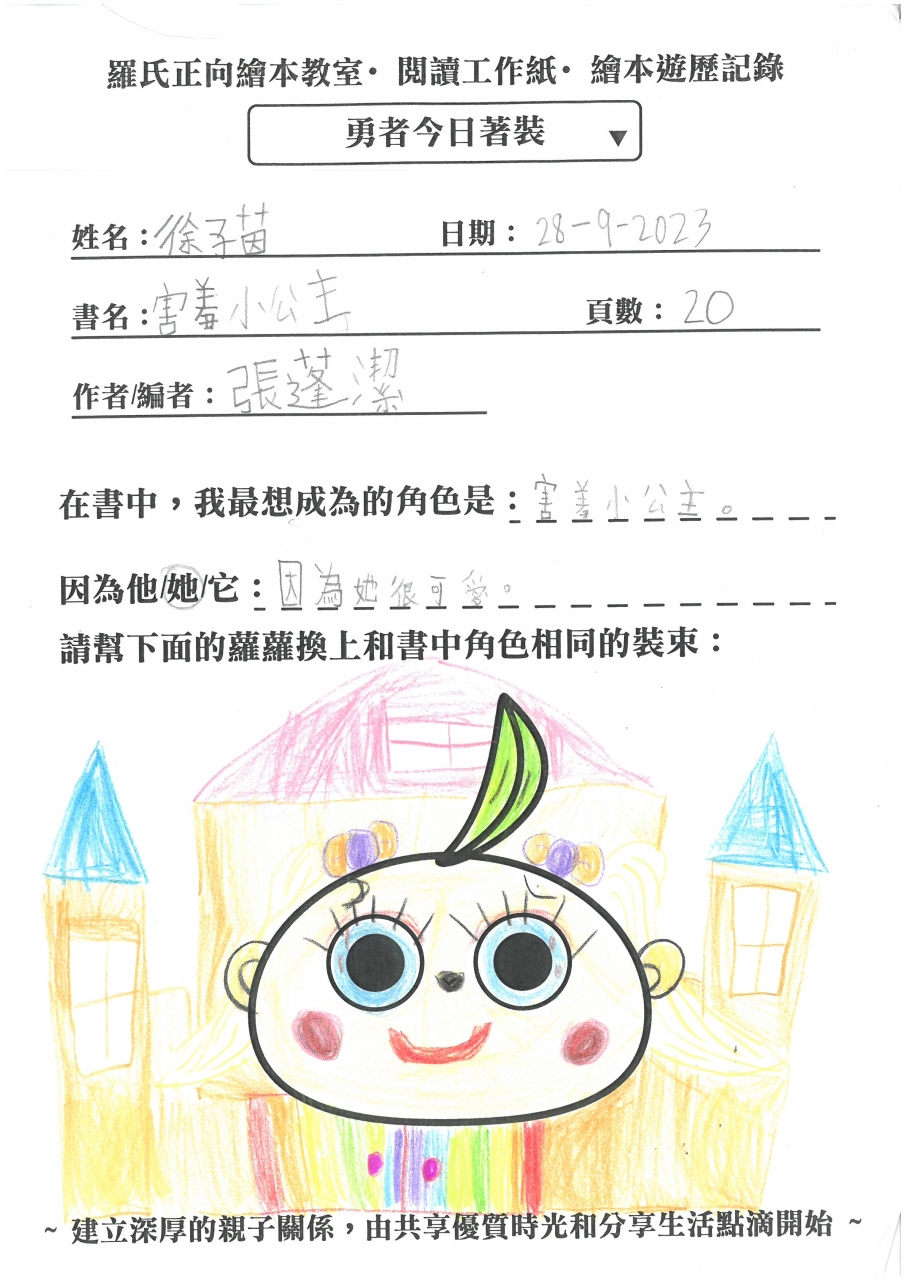 羅氏正向繪本教室•閱讀工作紙•繪本遊歷記錄
勇者今日著裝
姓名:徐子茵 日期:28-9-2023
書名:害羞小公主 頁數:20
作者/編者:張蓬潔
在書中,我最想成為的角色是:害羞小公主。
因為他/她/它:因為她很可愛。
請幫下面的蘿蘿換上和書中角色相同的裝束:
~ 建立深厚的親子關係,由共享優質時光和分享生活點滴開始 ~